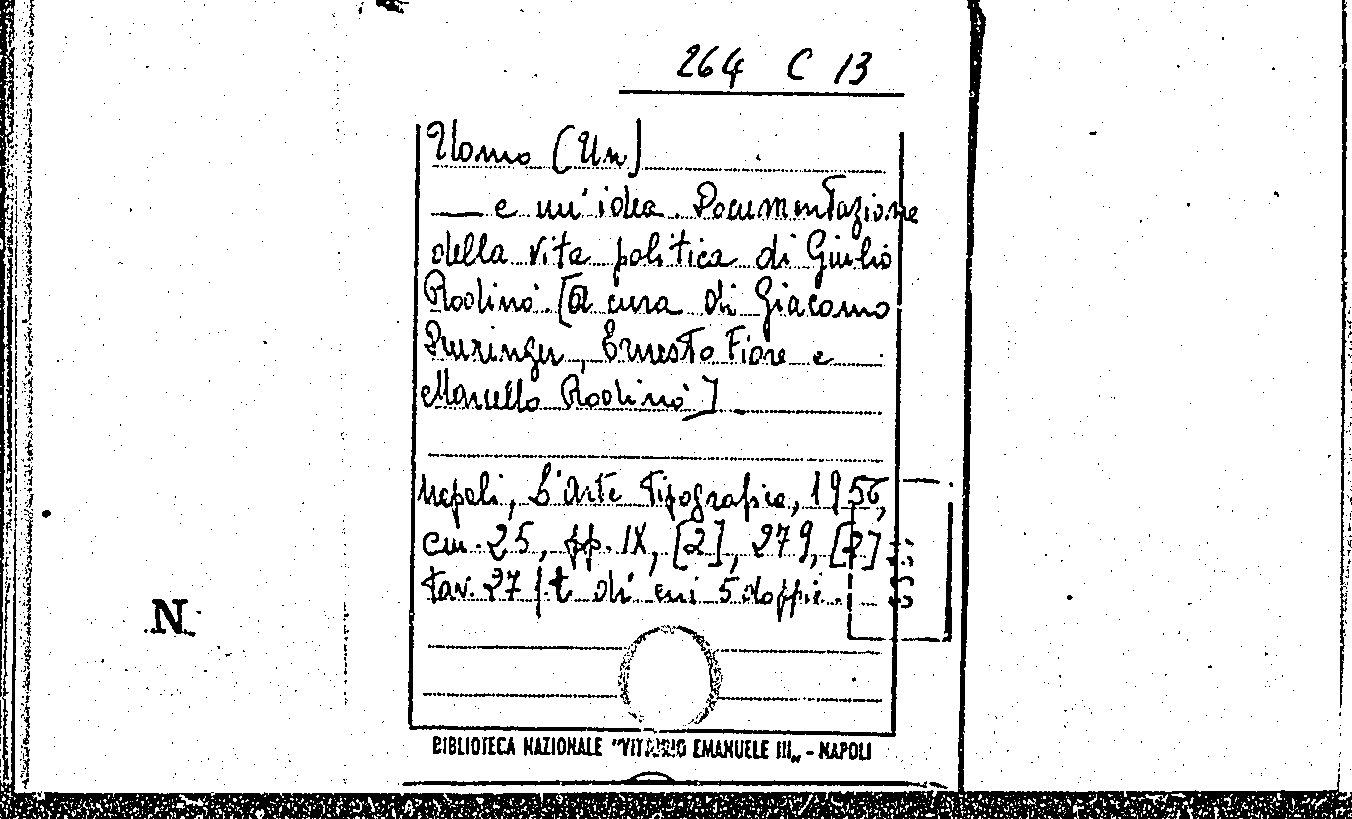 264 C 13
Uomo (Un)
— e un'idea. Documentazione
della vita politica di Giulio
Rodinò. [A cura di Giacomo
Deuringer, Ernesto Fiore e
Marcello Rodinò]
Napoli, L'Arte Tipografica, 1956,
cm. 25, pp. IX, [2], 279, [2]
tav. 27 f.t. di cui 5 doppie.
N.
BIBLIOTECA NAZIONALE "VITTORIO EMANUELE III„ - NAPOLI